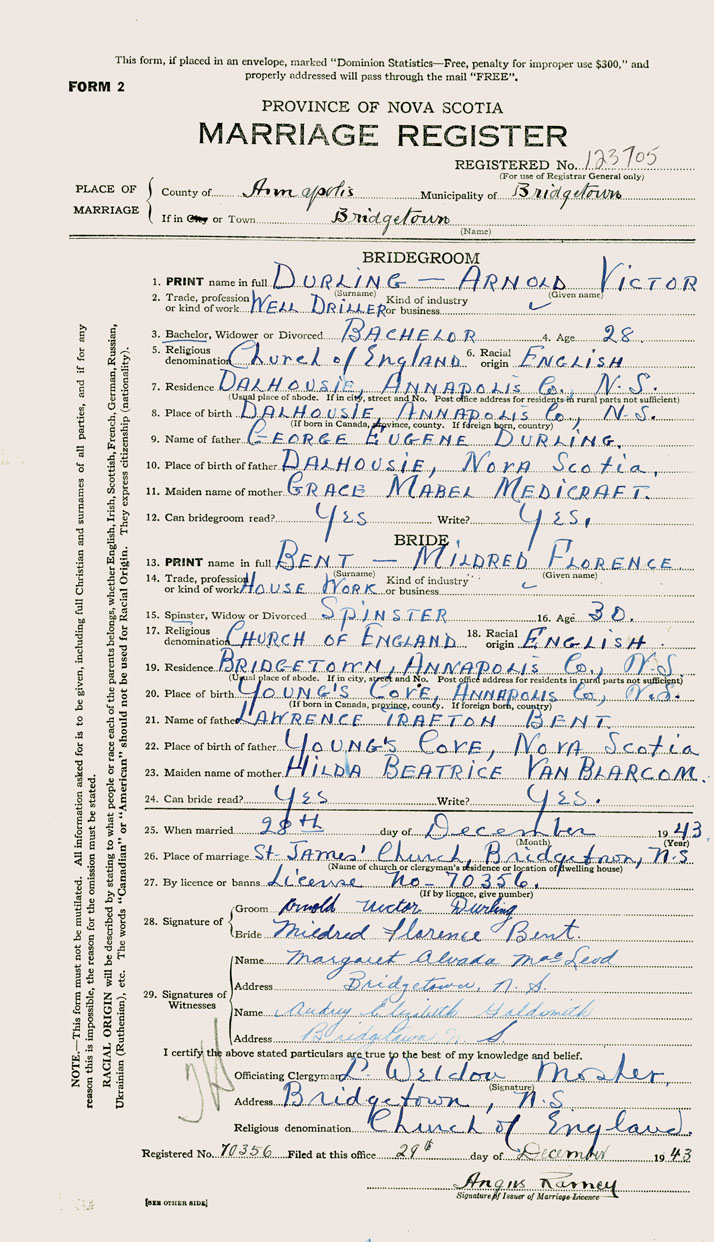 This form, if placed in an envelope, marked "Dominion Statistics—Free, penalty for improper use $300," and
properly addressed will pass through the mail "FREE".
FORM 2
PROVINCE OF NOVA SCOTIA
MARRIAGE REGISTER
REGISTERED No. 123705
(For use of Registrar General only)
PLACE OF MARRIAGE
County of Annapolis Municipality of Bridgetown
If in City or Town Bridgetown
(Name)
BRIDEGROOM
1. PRINT name in full DURLING — ARNOLD VICTOR
(Surname) (Given name)
2. Trade, profession or kind of work WELL DRILLER Kind of industry or business
3. Bachelor, Widower or Divorced BACHELOR 4. Age 28.
5. Religious denomination Church of ENGLAND 6. Racial origin ENGLISH
7. Residence DALHOUSIE, ANNAPOLIS Co., N.S.
(Usual place of abode. If in city, street and No. Post office address for residents in rural parts not sufficient)
8. Place of birth DALHOUSIE, ANNAPOLIS Co., N.S.
(If born in Canada, province, county. If foreign born, country)
9. Name of father GEORGE EUGENE DURLING.
10. Place of birth of father DALHOUSIE, NOVA SCOTIA,
11. Maiden name of mother GRACE MABEL MEDICRAFT.
12. Can bridegroom read? YES Write? YES.
BRIDE
13. PRINT name in full BENT — MILDRED FLORENCE
(Surname) (Given name)
14. Trade, profession or kind of work HOUSE WORK Kind of industry or business
15. Spinster, Widow or Divorced SPINSTER 16. Age 30.
17. Religious denomination CHURCH OF ENGLAND 18. Racial origin ENGLISH.
19. Residence BRIDGETOWN, ANNAPOLIS Co., N.S
(Usual place of abode. If in city, street and No. Post office address for residents in rural parts not sufficient)
20. Place of birth YOUNG'S COVE, ANNAPOLIS Co, N.S.
(If born in Canada, province, county. If foreign born, country)
21. Name of father LAWRENCE TRAFTON BENT.
22. Place of birth of father YOUNG'S COVE, NOVA SCOTIA
23. Maiden name of mother HILDA BEATRICE VAN BLARCOM.
24. Can bride read? YES Write? YES.
25. When married 28th day of December 1943.
(Month) (Year)
26. Place of marriage St. James' Church, Bridgetown, N.S
(Name of church or clergyman's residence or location of dwelling house)
27. By licence or banns License No- 70356.
(If by licence, give number)
28. Signature of
Groom Arnold Victor Durling
Bride Mildred Florence Bent.
29. Signatures of Witnesses
Name Margaret Alvada MacLeod
Address Bridgetown, N. S.
Name Audrey Elizabeth Goldsmith
Address Bridgetown N. S
I certify the above stated particulars are true to the best of my knowledge and belief.
Officiating Clergyman Weldon Mosher,
(Signature)
Address Bridgetown, N.S.
Religious denomination Church of England.
Registered No. 70356 Filed at this office 29th day of December 1943
Angus Ramey
Signature of Issuer of Marriage Licence
[SEE OTHER SIDE]
NOTE.—This form must not be mutilated. All information asked for is to be given, including full Christian and surnames of all parties, and if for any
reason this is impossible, the reason for the omission must be stated.
RACIAL ORIGIN will be described by stating to what people or race each of the parents belongs, whether English, Irish, Scottish, French, German, Russian,
Ukrainian (Ruthenian), etc. The words "Canadian" or "American" should not be used for Racial Origin. They express citizenship (nationality).